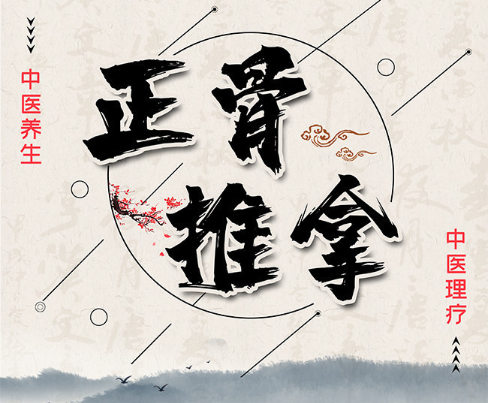 中医养生
正骨
推拿
中医理疗